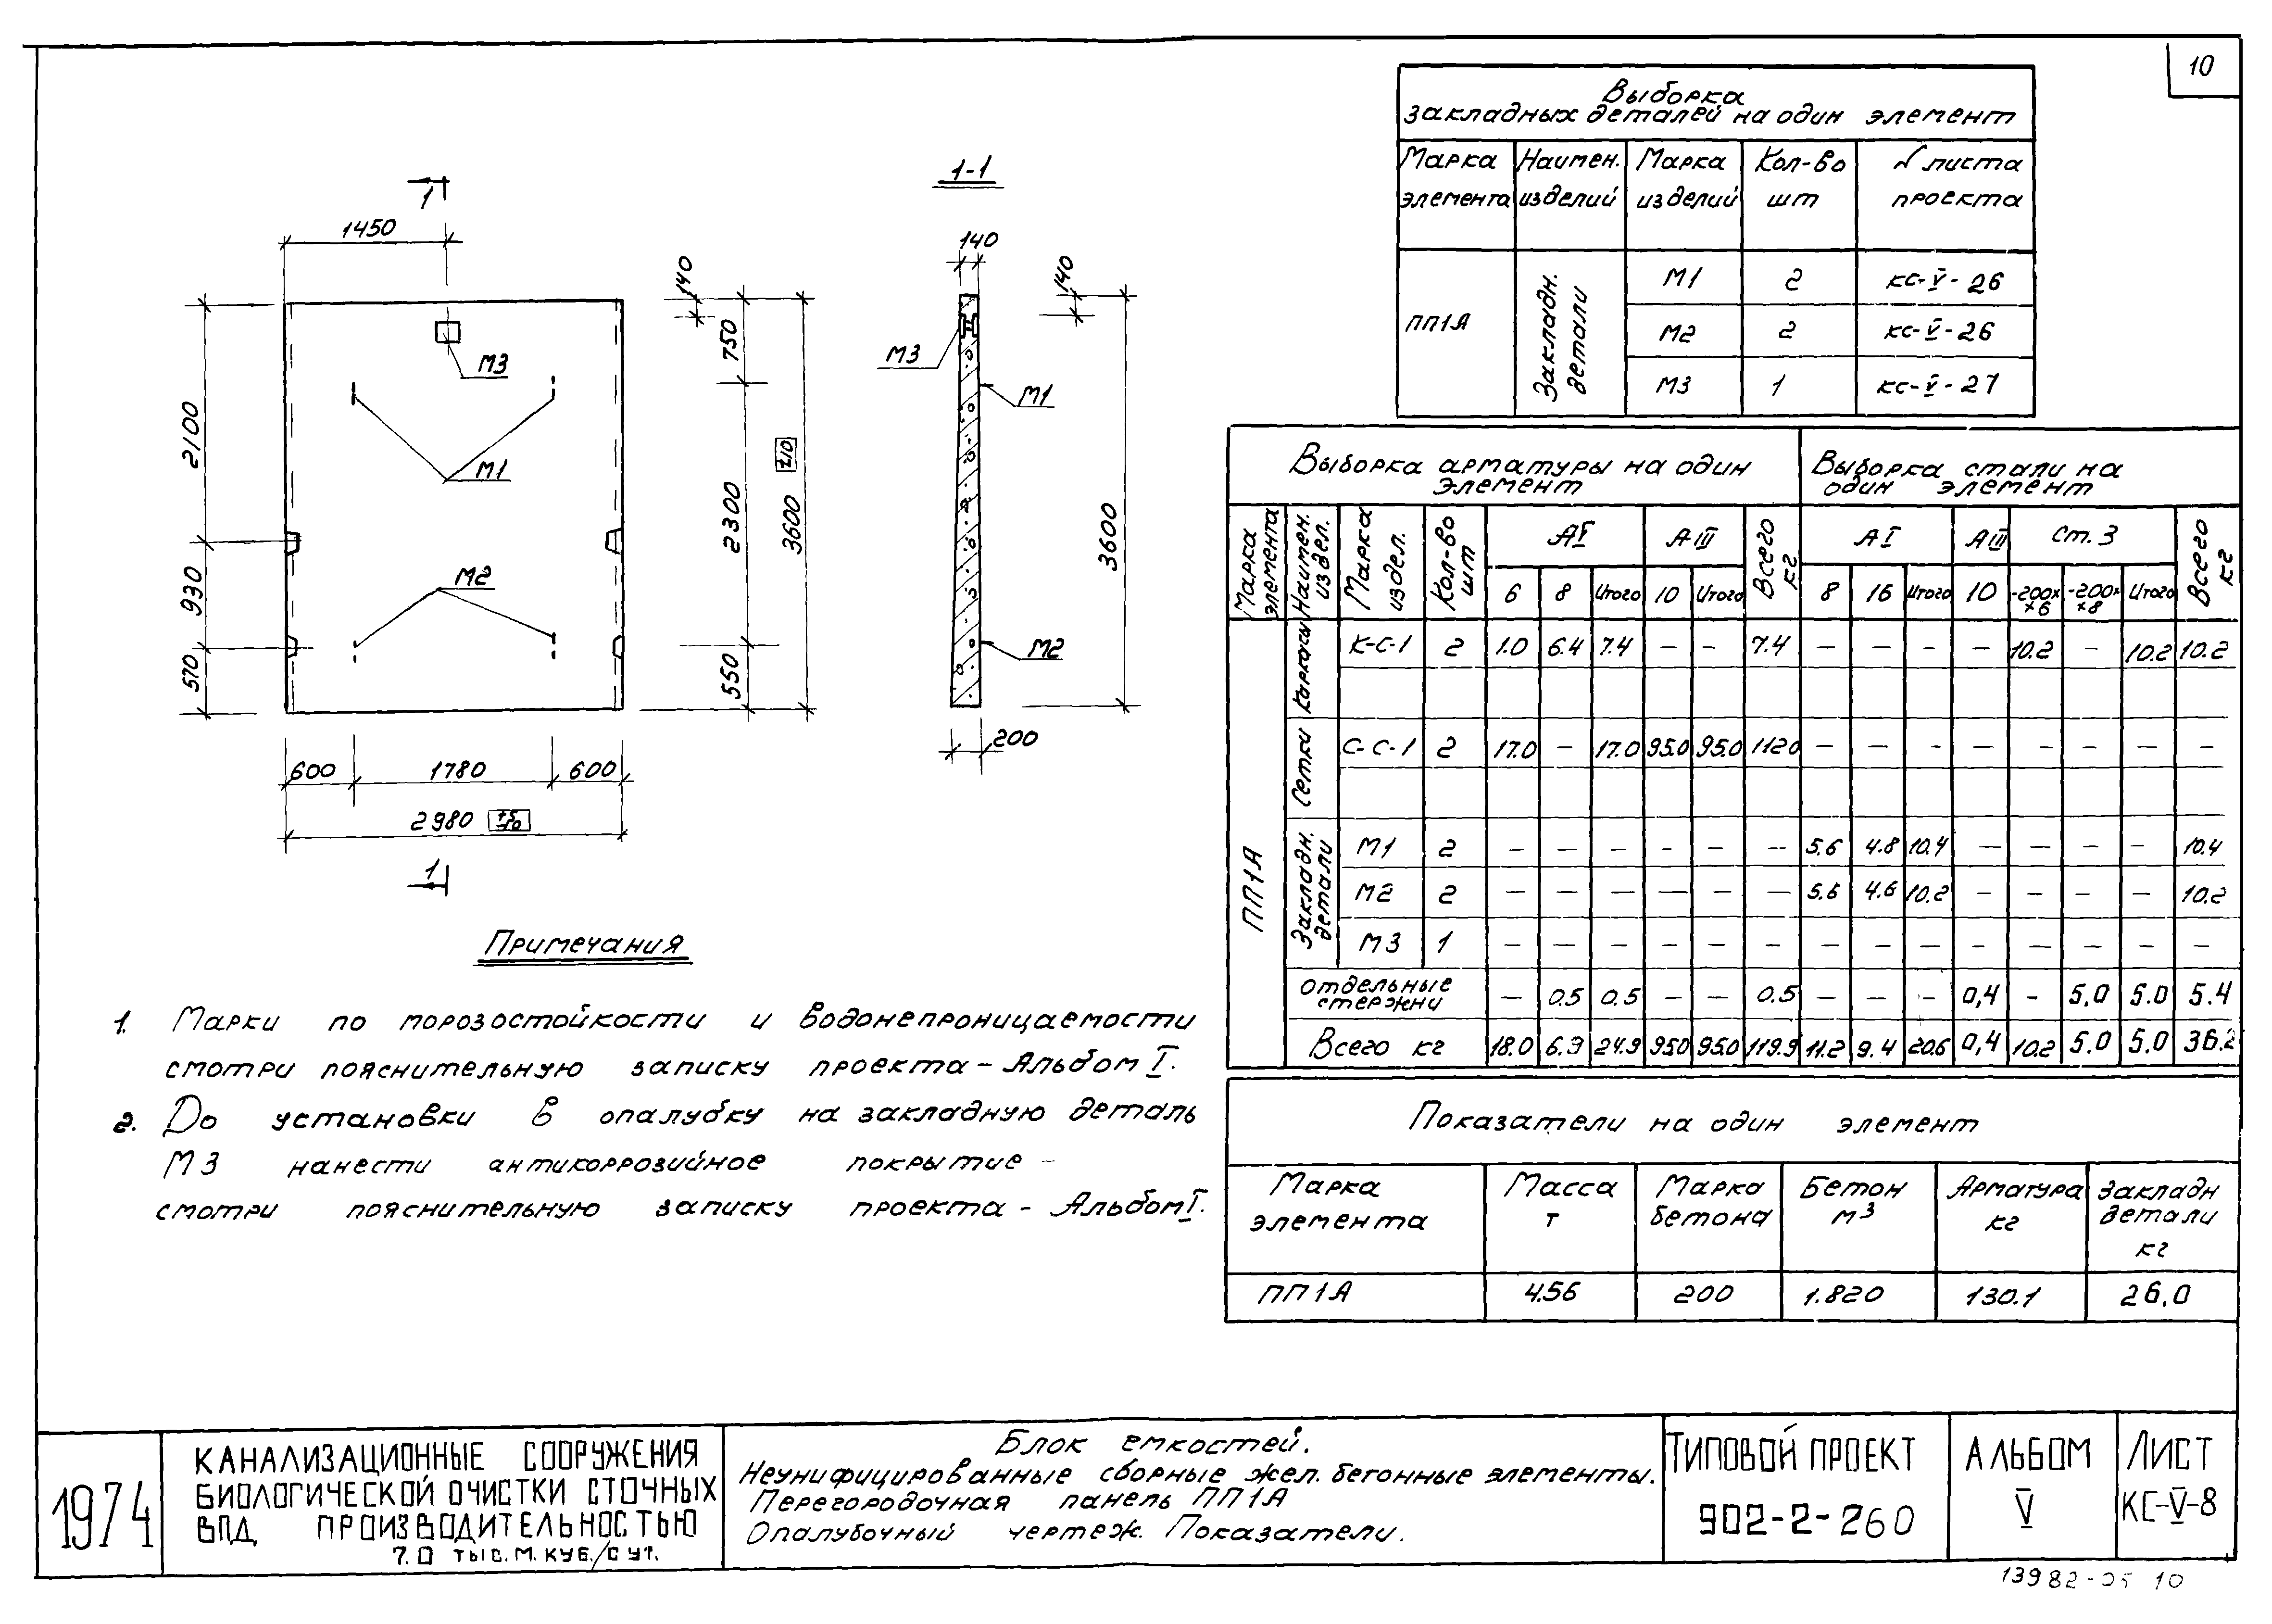 10
1
1450
2100
930
570
М3
М1
М2
140
750
2300
550
3600
600
1780
600
2980
1
1-1
140
140
М3
М1
М2
3600
200
Выборка
закладных деталей на один элемент
Марка элемента | Наимен. изделий | Марка изделий | Кол-во шт | № листа проекта
ПП1А | Закладн. детали | М1 | 2 | КС-V-26
М2 | 2 | КС-V-26
М3 | 1 | КС-V-27
Выборка арматуры на один элемент | Выборка стали на один элемент
Марка элемента | Наимен. издел. | Марка издел. | Кол-во шт | АI | АIII | Всего кг | АI | АIII | Ст.3 | Всего кг
6 | 8 | Итого | 10 | Итого | 8 | 16 | Итого | 10 | -200х×6 | -200х×8 | Итого
ПП1А
Каркасы | К-С-1 | 2 | 1.0 | 6.4 | 7.4 | – | – | 7.4 | – | – | – | – | 10.2 | – | 10.2 | 10.2
Сетки | С-С-1 | 2 | 17.0 | – | 17.0 | 95.0 | 95.0 | 112.0 | – | – | – | – | – | – | – | –
Закладн. детали | М1 | 2 | – | – | – | – | – | – | 5.6 | 4.8 | 10.4 | – | – | – | – | 10.4
М2 | 2 | – | – | – | – | – | – | 5.6 | 4.6 | 10.2 | – | – | – | – | 10.2
М3 | 1 | – | – | – | – | – | – | – | – | – | – | – | – | – | –
отдельные стержни | – | 0.5 | 0.5 | – | – | 0.5 | – | – | – | 0,4 | – | 5.0 | 5.0 | 5.4
Всего кг | 18.0 | 6.9 | 24.9 | 95.0 | 95.0 | 119.9 | 11.2 | 9.4 | 20.6 | 0,4 | 10.2 | 5.0 | 5.0 | 36.2
Показатели на один элемент
Марка элемента | Масса т | Марка бетона | Бетон м³ | Арматура кг | Закладн детали кг
ПП1А | 4.56 | 200 | 1.820 | 130.1 | 26,0
Примечания
1. Марки по морозостойкости и водонепроницаемости
смотри пояснительную записку проекта – Альбом I.
2. До установки в опалубку на закладную деталь
М3 нанести антикоррозийное покрытие –
смотри пояснительную записку проекта – Альбом I.
1974
КАНАЛИЗАЦИОННЫЕ СООРУЖЕНИЯ
БИОЛОГИЧЕСКОЙ ОЧИСТКИ СТОЧНЫХ
ВОД ПРОИЗВОДИТЕЛЬНОСТЬЮ
7.0 ТЫС.М.КУБ./СУТ.
Блок емкостей.
Неунифицированные сборные жел.бетонные элементы.
Перегородочная панель ПП1А
Опалубочный чертеж. Показатели.
ТИПОВОЙ ПРОЕКТ
902-2-260
АЛЬБОМ
V
ЛИСТ
КС-V-8
13982-05 10